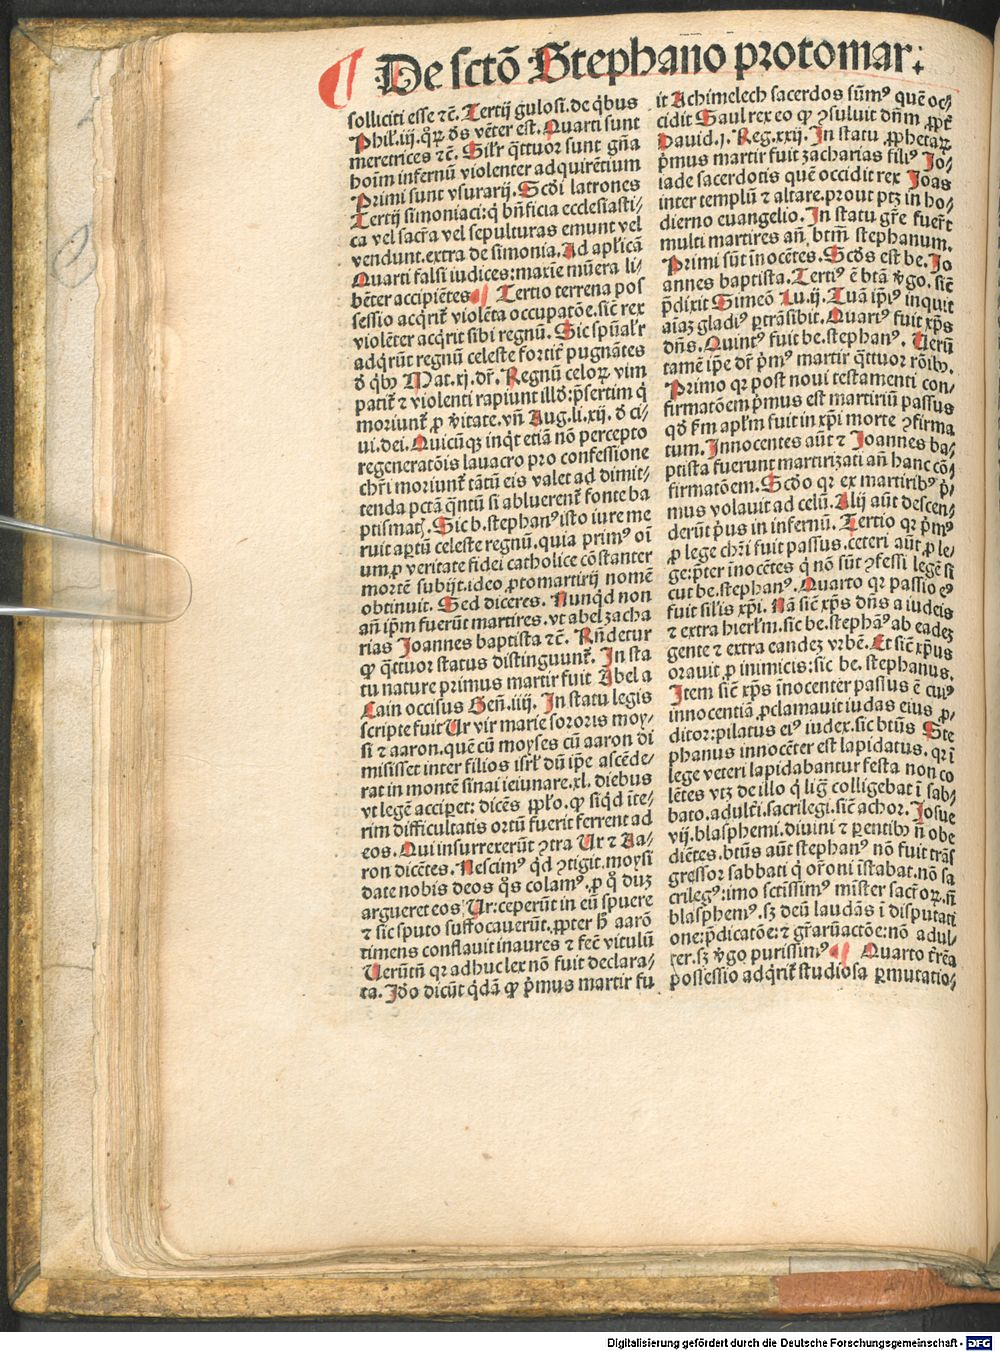 De sctō Stephano protomar:
solliciti esse ⁊c̄. Tertij gulosi. de q̇bus
Phil'. iij. q̊ꝝ de9 vēter est. Quarti sunt
meretrices ⁊c̄. Sil'r q̄ttuor sunt gn̄a
hoīm infernū violenter ad quirētium
Primi sunt vsurarij. Scd̓i latrones
Tertij simoniaci: q̇ bn̄ficia ecclesiasti⸗
ca vel sacr̄a vel sepulturas emunt vel
vendunt. extra de simonia. Ad apl'icā
Quarti falsi iudices: maxīe mūera li⸗
bēter accipiētes Tertio terrena pos
sessio acq̇rit᷑ violēta occupatōe. sic̄ rex
violēter acq̇rit sibi regnū. Sic spūal'r
adq̇rūt regnū celeste fortit᷑ pugnātes
d̓ q̇bꝫ Mat. xj. dr̄. Regnū celoꝝ vim
patit᷑ ⁊ violenti rapiunt illd̓: p̄sertim q̇
moriunt᷑ ꝓ v̓itate. vn̄ Aug. li. xij. d̓ ci⸗
ui. dei. Quicūqꝫ inq̇t etiā nō percepto
regeneratōis lauacro pro confessione
chr̄i moriunt᷑ tātū eis valet ad dimit⸗
tenda pctā q̄ntū si abluerent᷑ fonte ba
ptismatꝭ. Sic b. stephan9 isto iure me
ruit aꝑtū celeste regnū. quia prim9 oī
um ꝓ veritate fidei catholice cōstanter
mortē subijt. ideo ꝓtomartirij nomē
obtinuit. Sed diceres. Nunq̇d non
an̄ ip̄m fuerūt martires. vt abel zacha
rias Joannes baptista ⁊c̄. Rn̄detur
ꝙ q̄ttuor status distinguunt᷑. In sta
tu nature primus martir fuit Abel a
Cain occisus Gen̄. iiij. In statu legis
scripte fuit Ur vir marie sororis moy⸗
si ⁊ aaron. quē cū moyses cū aaron di
misisset inter filios isrl' dū ip̄e ascēde⸗
rat in montē sinai ieiunare. xl. diebus
vt legē acciꝑet: dicēs ppl'o. ꝙ siq̇d īte⸗
rim difficultatis ortū fuerit ferrent ad
eos. Qui insurrexerūt ꝯtra Ur ⁊ Aa⸗
ron dicētes. Nescim9 q̇d ꝯtigit moysi
date nobis deos q̊s colam9. ꝓ q̊ duꝫ
argueret eos Ur: ceperūt in eū spuere
⁊ sic sputo suffocauerūt. ꝓpter h̄ aarō
timens conflauit inaures ⁊ fec̄ vitulū
Uerūtn̄ qꝛ adhuc lex nō fuit declara⸗
ta. Jd̓o dicūt q̇dā ꝙ p̓mus martir fu
it Achimelech sacerdos sūm9 quē oc⸗
cidit Saul rex eo ꝙ ꝯsuluit dn̄m ꝓpt᷑
Dauid. j. Reg. xxij. In statu ꝓphetaꝝ
p̓mus martir fuit zacharias fili9 Jo⸗
iade sacerdotis quē occidit rex Joas
inter templū ⁊ altare. prout ptꝫ in ho⸗
dierno euangelio. In statu gr̄e fuer̄t
multi martires an̄ btm̄ stephanum.
Primi sūt īnocētes. Scd̓s est be. Jo
annes baptista. Terti9 ē btā v̓go. sic̄
p̄dixit Simeō Lu. ij. Tuā ip̄i9 inquit
aīaꝫ gladi9 ꝑtrāsibit. Quart9 fuit xp̄s
dn̄s. Quint9 fuit be. stephan9. Uerū
tamē ip̄e dr̄ p̓m9 martir q̄ttuor rōibꝫ.
Primo qꝛ post noui testamenti con⸗
firmatōem p̓mus est martiriū passus
qd̓ f̄m apl'm fuit in xp̄i morte ꝯfirma
tum. Innocentes aūt ⁊ Joannes ba⸗
ptista fuerunt martirizati an̄ hanc cō⸗
firmatōem. Scd̓o qꝛ ex martirib9 p̓⸗
mus volauit ad celū. Alij aūt descen⸗
derūt p̓us in infernū. Tertio qꝛ p̓m9
ꝓ lege chr̄i fuit passus. ceteri aūt ꝓ le⸗
ge: p̄ter īnocētes q̇ nō sūt ꝯfessi legē si
cut be. stephan9. Quarto qꝛ passio e9
fuit sil'is xp̄i. Nā sic̄ xp̄s dn̄s a iudeis
⁊ extra hierl'm. sic be. stephan9 ab eadeꝫ
gente ⁊ extra eandeꝫ vrbē. Et sic̄ xp̄us
orauit ꝓ inimicis: sic be. stephanus.
Item sic̄ xp̄s īnocenter passus ē cui9
innocentiā ꝓclamauit iudas eius ꝓ⸗
ditor: pilatus ei9 iudex. sic btūs Ste
phanus innocēter est lapidatus. qꝛ ī
lege veteri lapidabantur festa non co
lētes vtꝫ de illo q̇ liḡ colligebat ī sab⸗
bato. adult̓i. sacrilegi. sic̄ achor. Josue
vij. blasphemi. diuini ⁊ ꝑentibꝫ n̄ obe
diētes. btūs aūt stephan9 nō fuit trās
gressor sabbati q̇ or̄oni īstabat. nō sa
crileg9: imo sctissim9 mīster sacr̄oꝝ. n̄
blasphem9. sꝫ deū laudās ī disputati
one: p̄dicatōe: ⁊ gr̄aruactōe: nō adul⸗
ter. sꝫ v̓go purissim9 Quarto tr̄ēa
possessio adq̇rit᷑ studiosa ꝑmutatio⸗
Digitalisierung gefördert durch die Deutsche Forschungsgemeinschaft - DFG